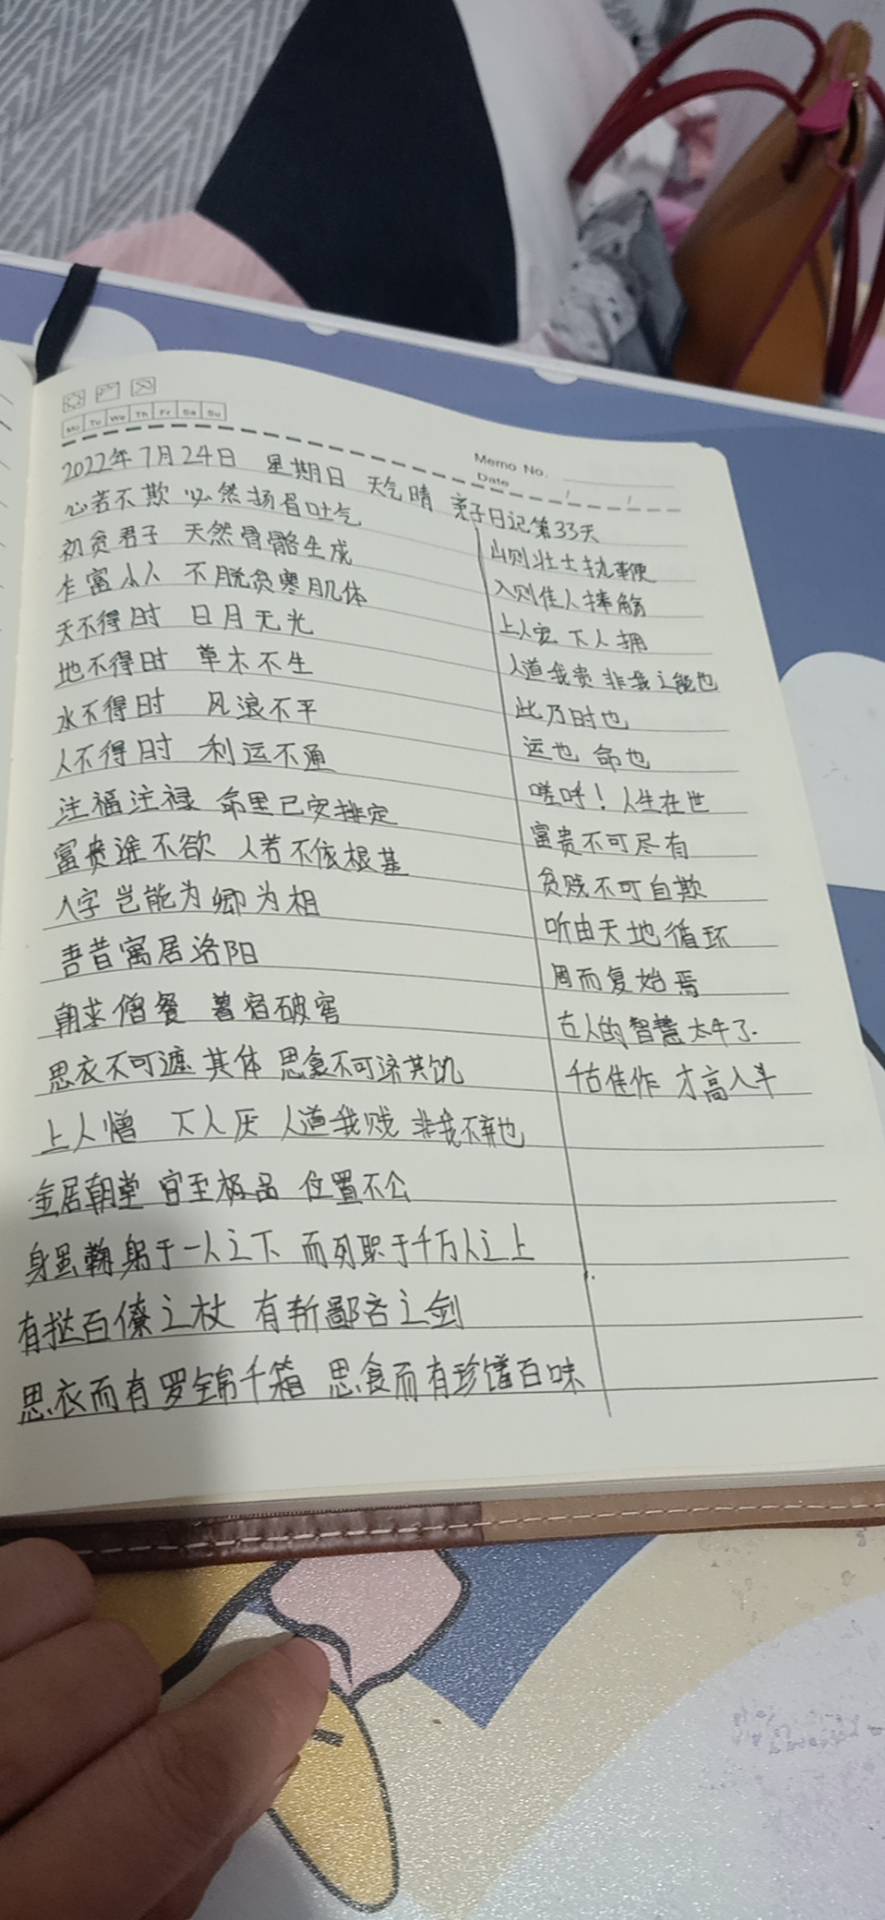 Mo Tu We Th Fr Sa Su
Memo No.
Date / /
2022年7月24日 星期日 天气晴 亮子日记第33天
心若不欺 必然扬眉吐气
初贫君子 天然骨骼生成
乍富小人 不脱贫寒肌体
天不得时 日月无光
地不得时 草木不生
水不得时 风浪不平
人不得时 利运不通
注福注禄 命里已安排定
富贵谁不欲 人若不依根基
八字 岂能为卿为相
吾昔寓居洛阳
朝求僧餐 暮宿破窖
思衣不可遮其体 思食不可济其饥
上人憎 下人厌 人道我贱 非我不弃也
今居朝堂 官至极品 位置不公
身虽鞠躬于一人之下 而列职于千万人之上
有挞百僚之杖 有斩鄙吝之剑
思衣而有罗锦千箱 思食而有珍馐百味
出则壮士执鞭
入则佳人捧觞
上人宠 下人拥
人道我贵 非我之能也
此乃时也
运也 命也
嗟呼！人生在世
富贵不可尽有
贫贱不可自欺
听由天地循环
周而复始焉
古人的智慧太牛了.
千古佳作 才高八斗